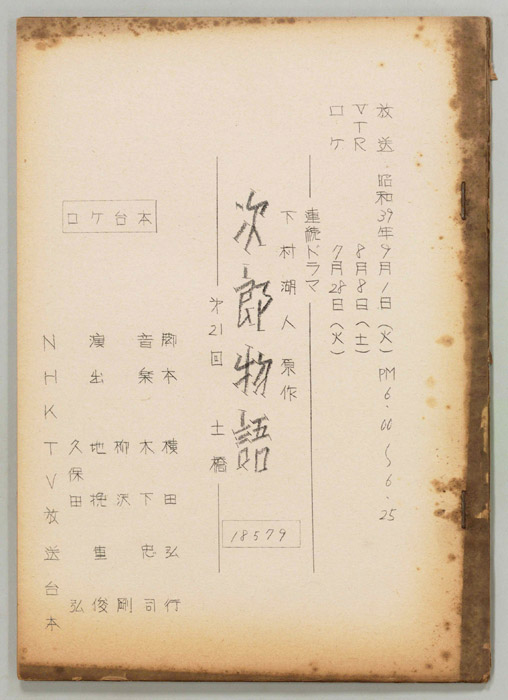 放送 昭和39年9月1日(火) PM6.00〜6.25
VTR 8月8日(土)
ロケ 7月28日(火)
連続ドラマ
下村湖人 原作
次郎物語
第21回 土橋
18579
ロケ台本
脚本 横田弘行
音楽 木下忠司
柳沢 剛
演出 地挽重俊
久保田 弘
NHKTV放送台本